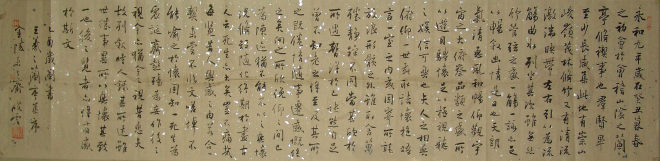 永和九年歲在癸丑暮春
之初會於會稽山陰之蘭
亭脩禊事也群賢畢
至少長咸集此地有崇山
峻領茂林脩竹又有清流
激湍映帶左右引以為流
觴曲水列坐其次雖無絲
竹管弦之盛一觴一詠亦足
以暢敘幽情是日也天朗
氣清惠風和暢仰觀宇
宙之大俯察品類之盛所
以遊目騁懷足以極視聽之
娛信可樂也夫人之相與
俯仰一世或取諸懷抱晤
言一室之內或因寄所託
放浪形骸之外雖趣舍萬
殊靜躁不同當其欣於
所遇暫得於己快然自足
曾不知老之將至及其所
之既惓情隨事遷感慨
係之矣向之所欣俛仰之間已
為陳迹猶不能不以之興懷
況脩短隨化終期於盡古
人云死生亦大矣豈不痛哉
每攬昔人興感之由若合一
契未嘗不臨文嗟悼不
能喻之於懷固知一死生為
虛誕齊彭殤為妄作後之
視今亦由今之視昔悲夫
故列敘時人錄其所述雖
世殊事異所以興懷其致
一也後之攬者亦將有感
於斯文
王羲之蘭亭集序